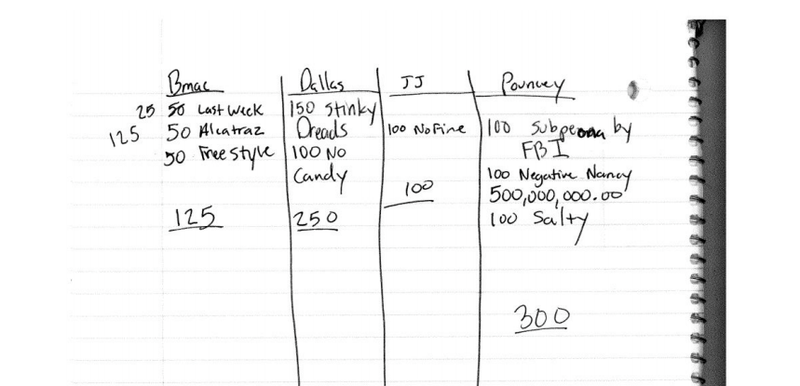 Bmac
25 50 Last Week
125 50 Alcatraz
50 Freestyle
125
Dallas
150 Stinky
Dreads
100 No
Candy
250
JJ
100 No Fine
100
Pouncey
100 Subpeona by
FBI
100 Negative Nancy
500,000,000.00
100 Salty
300